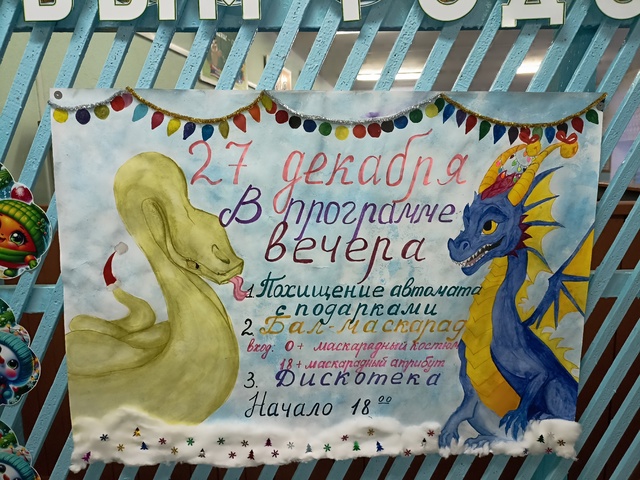 27 декабря
В программе
вечера
1 Похищение автомата
с подарками
2 Бал-маскарад
вход: 0+ маскарадный костюм
18+ маскарадный атрибут
3. Дискотека
Начало 18 00